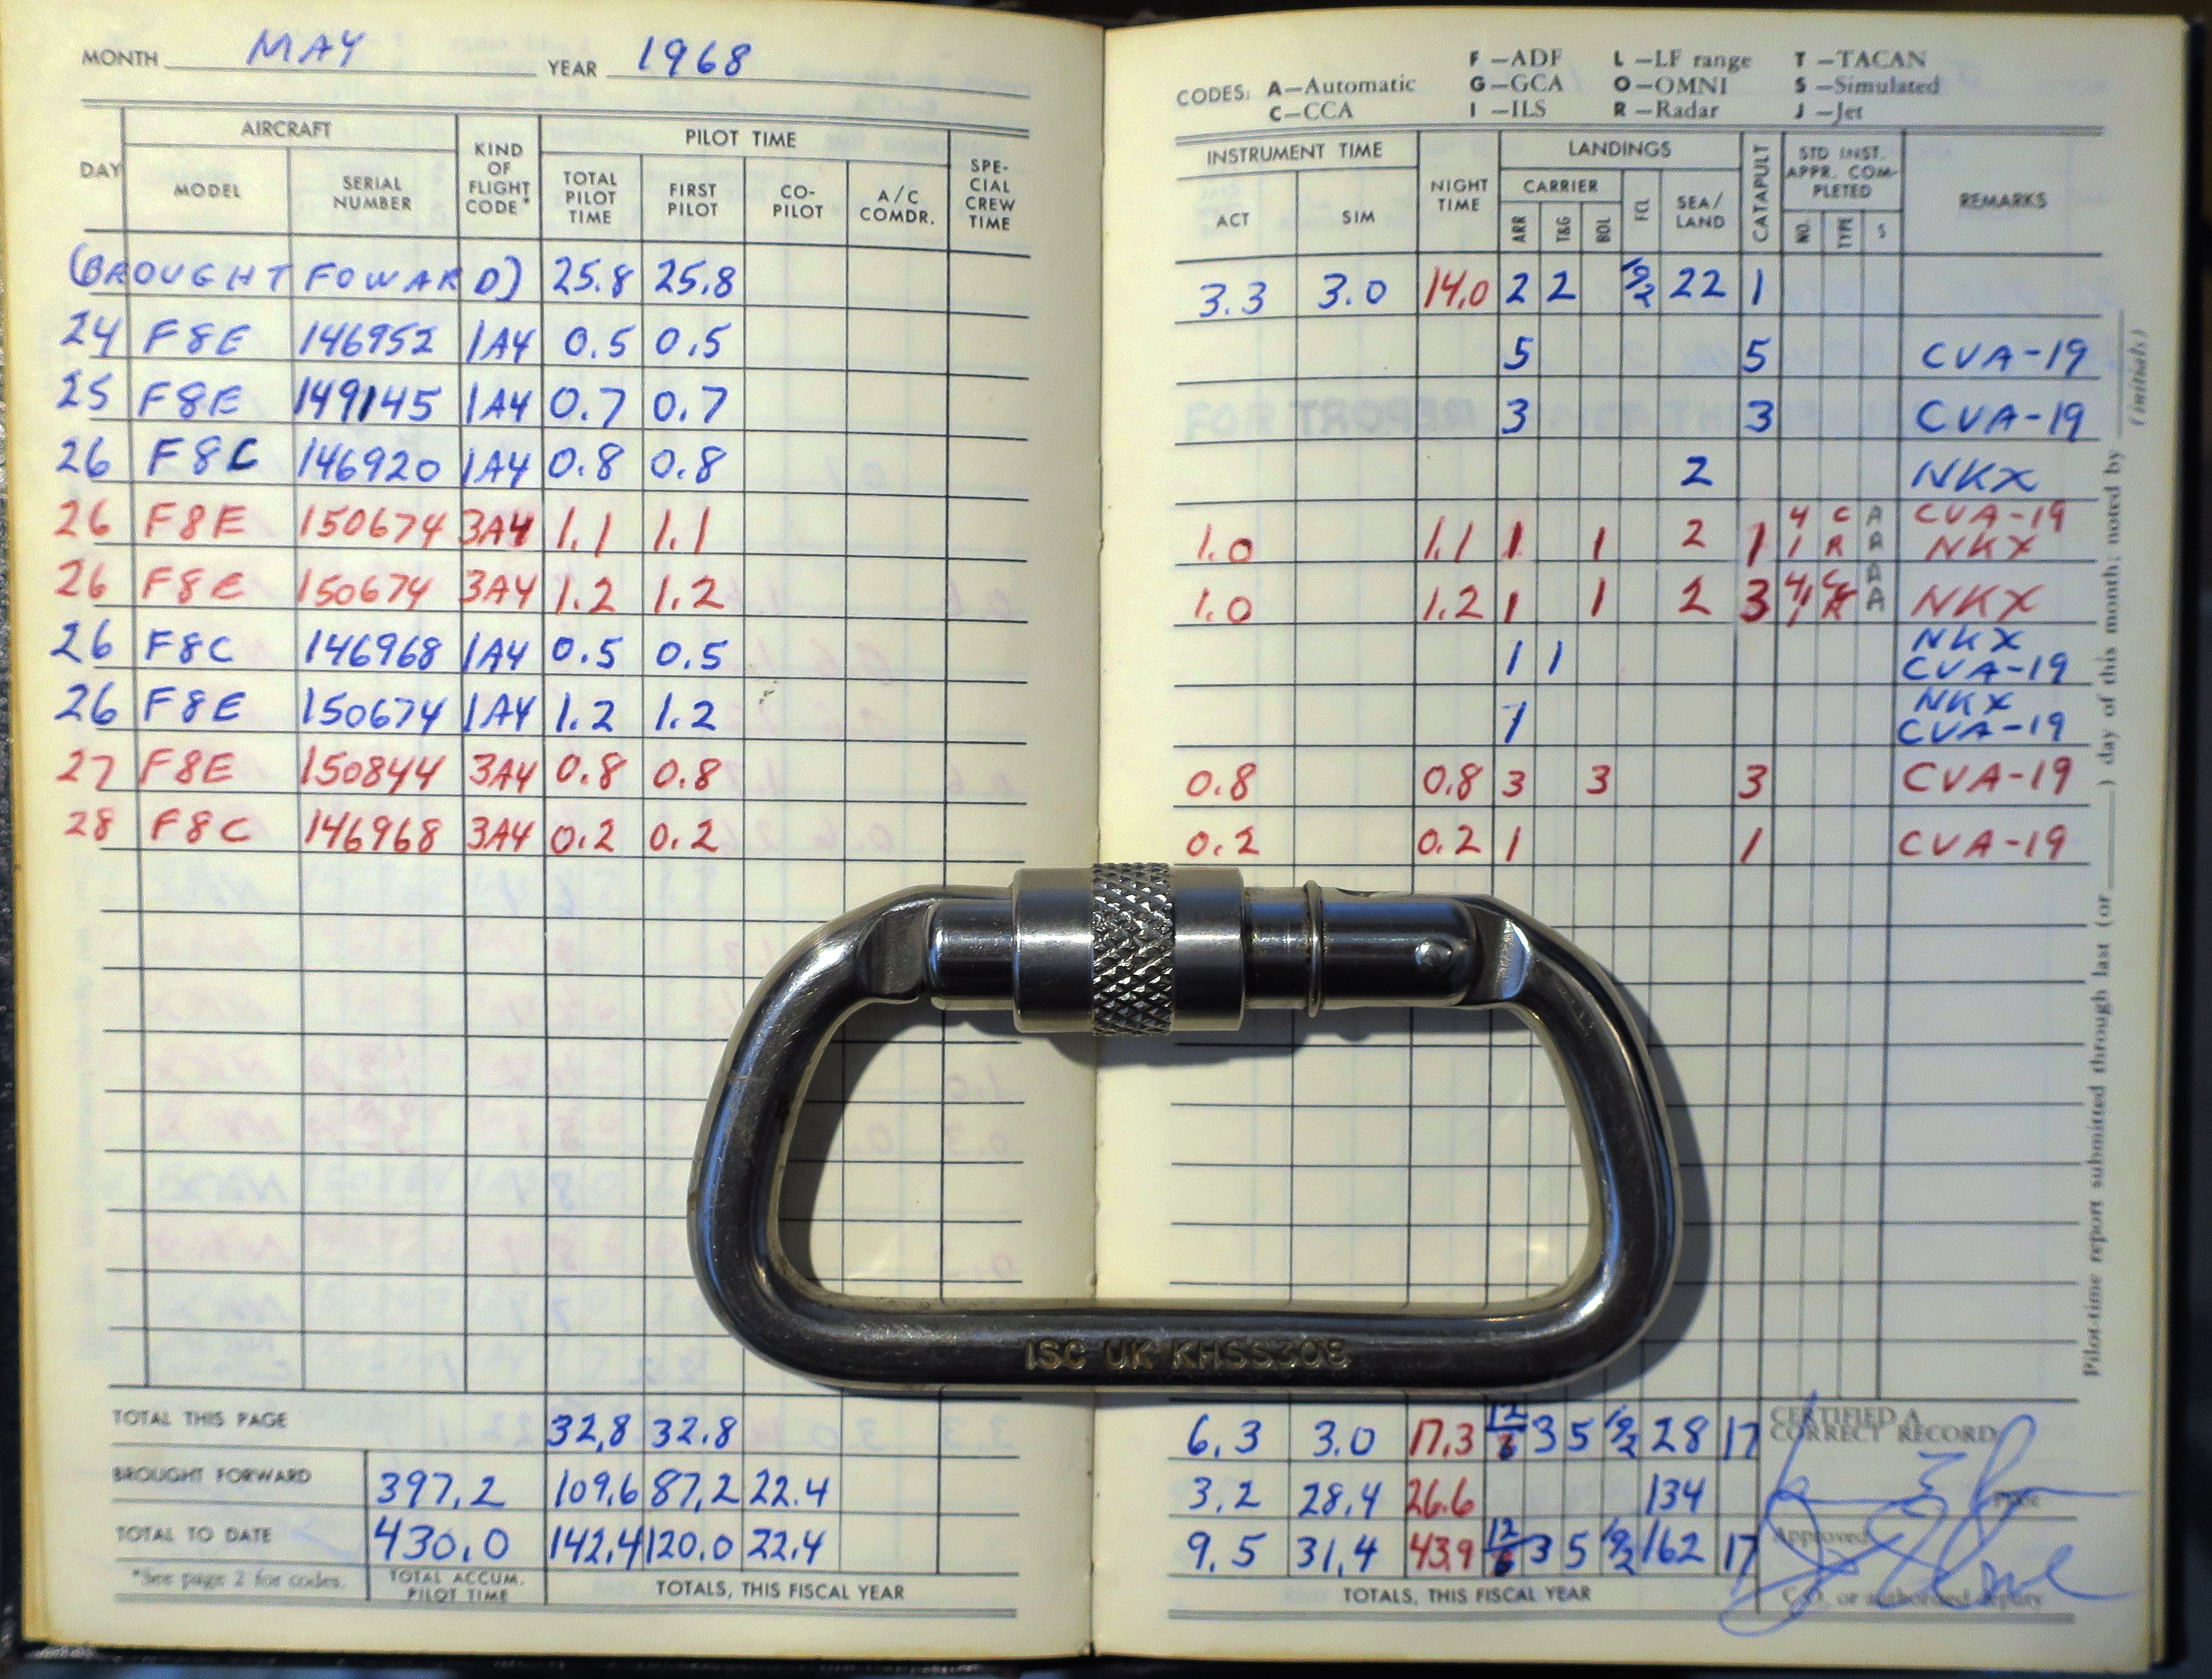 MONTH MAY YEAR 1968
DAY
AIRCRAFT
MODEL
SERIAL NUMBER
KIND OF FLIGHT CODE*
PILOT TIME
TOTAL PILOT TIME
FIRST PILOT
CO-PILOT
A/C COMDR.
SPE-CIAL CREW TIME
(BROUGHT FOWARD) 25.8 25.8
24 F8E 146952 1A4 0.5 0.5
25 F8E 149145 1A4 0.7 0.7
26 F8C 146920 1A4 0.8 0.8
26 F8E 150674 3A4 1.1 1.1
26 F8E 150674 3A4 1.2 1.2
26 F8C 146968 1A4 0.5 0.5
26 F8E 150674 1A4 1.2 1.2
27 F8E 150844 3A4 0.8 0.8
28 F8C 146968 3A4 0.2 0.2
TOTAL THIS PAGE 32.8 32.8
BROUGHT FORWARD 397.2 109.6 87.2 22.4
TOTAL TO DATE 430.0 142.4 120.0 22.4
*See page 2 for codes.
TOTAL ACCUM. PILOT TIME
TOTALS, THIS FISCAL YEAR
CODES: A—Automatic
C—CCA
F—ADF
G—GCA
I—ILS
L—LF range
O—OMNI
R—Radar
T—TACAN
S—Simulated
J—Jet
INSTRUMENT TIME
ACT
SIM
NIGHT TIME
LANDINGS
CARRIER
ARR
T&G
BOL
FCL
SEA/LAND
CATAPULT
STD INST. APPR. COM-PLETED
NO.
TYPE
S
REMARKS
3.3 3.0 14.0 2 2 22 1
5 5 CVA-19
3 3 CVA-19
2 NKX
1.0 1.1 1 1 2 1 4 C A CVA-19
1 R A NKX
1.0 1.2 1 1 2 3 NKX
1 1 NKX
CVA-19
1 NKX
CVA-19
0.8 0.8 3 3 3 CVA-19
0.2 0.2 1 1 CVA-19
6.3 3.0 17.3 12 3 5 28 17
3.2 28.4 26.6 134
9.5 31.4 43.9 12 3 5 162 17
TOTALS, THIS FISCAL YEAR
CERTIFIED A CORRECT RECORD
Approved
C.O. or authorized deputy
Pilot-time report submitted through last (or ) day of this month; noted by
(initials)
ISC UK KHSS308